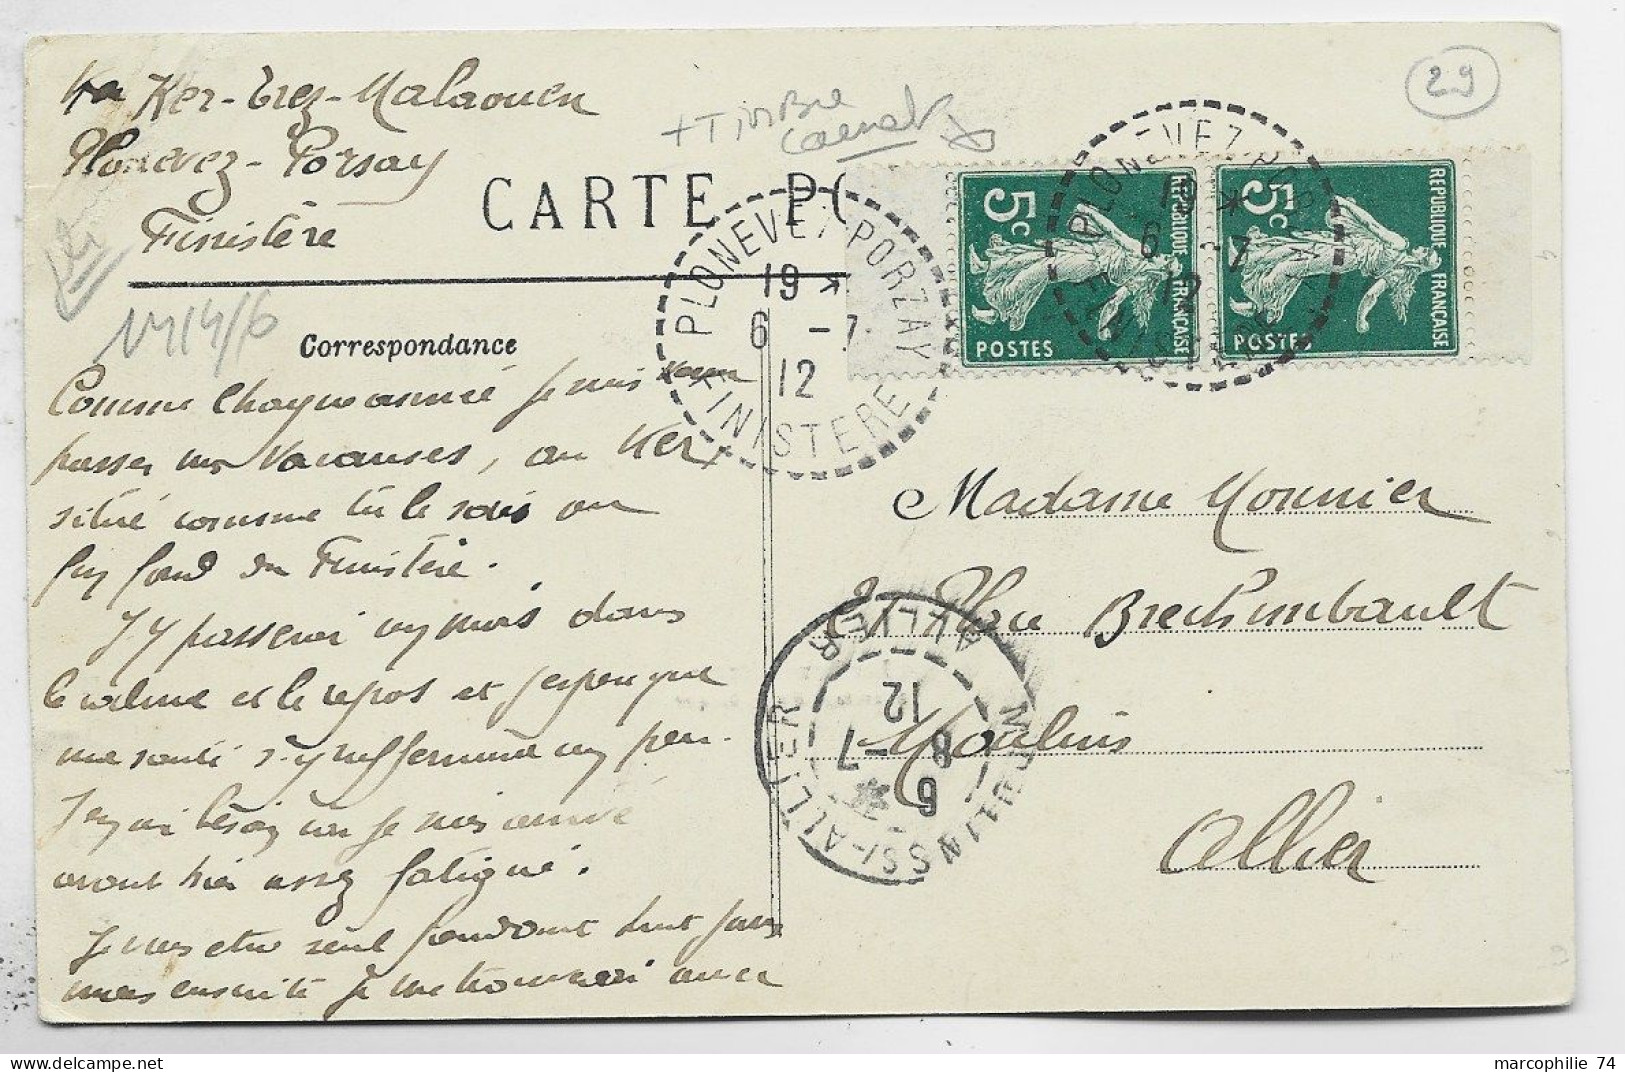 Ker-Trez-Malaouen
Plonevez-Porsay
Finistère
+ Timbre
carnet
29
CARTE PO
Correspondance
PLONEVEZ PORZAY
19 *
6 -7
12
FINISTERE
PLONEVEZ PORZAY
19 *
6 -7
12
FINISTERE
5c
REPUBLIQUE FRANÇAISE
POSTES
5c
REPUBLIQUE FRANÇAISE
POSTES
Comme chaque année je suis venu
passer mes vacances, au Ker,
situé comme tu le sais au
fin fond du Finistère.
J'y passerai un mois dans
le calme et le repos et j'espère que
ma santé s'y raffermira un peu.
J'en ai besoin car je suis arrivé
avant hier assez fatigué.
Je vais être seul pendant huit jours
mais ensuite je me trouverai avec
Madame Mounier
Place Brechimbault
Moulins
Allier
MOULINS S/-ALLIER
ALLIER
6
8 -7
12
marcophilie 74